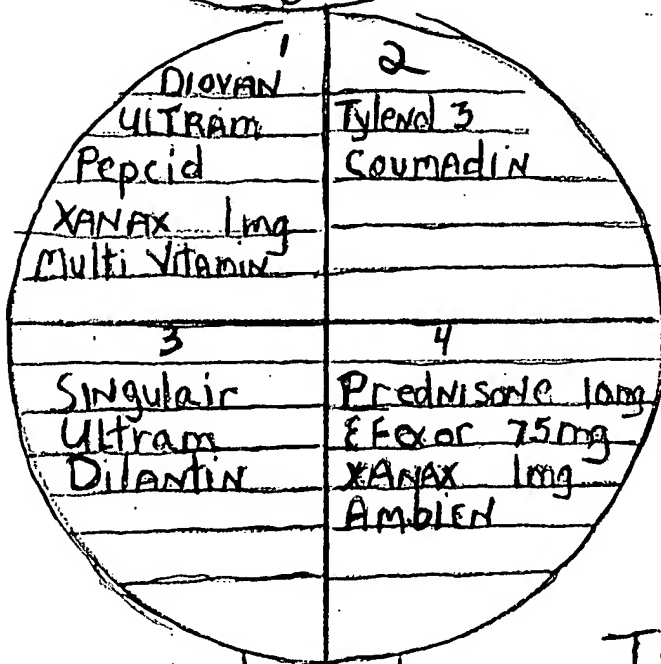 1
DIOVAN
ULTRAM
Pepcid
XANAX 1mg
Multi Vitamin
2
Tylenol 3
COUMADIN
3
SINgulair
Ultram
DILANTIN
4
PredNISONe 10mg
EFexor 75mg
XANAX 1mg
AMbIEN